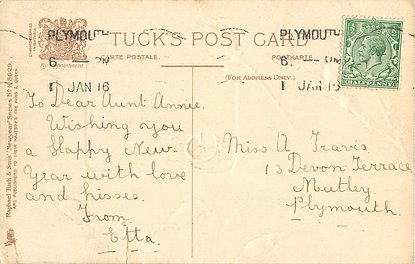 TUCK'S POST CARD
CARTE POSTALE.
(FOR ADDRESS ONLY.)
PLYMOUTH
6 - PM
1 JAN 16
PLYMOUTH
6. - PM
1 JAN 16
HALFPENNY
Raphael Tuck & Sons' "New Year" Series No N 5029.
ART PUBLISHERS TO THEIR MAJESTIES THE KING & QUEEN.
To Dear Aunt Annie.
Wishing you
a Happy New-
Year with love
and kisses.
From
Etta.
Miss. A Travis.
13 Devon Terrace
Mutley.
Plymouth.